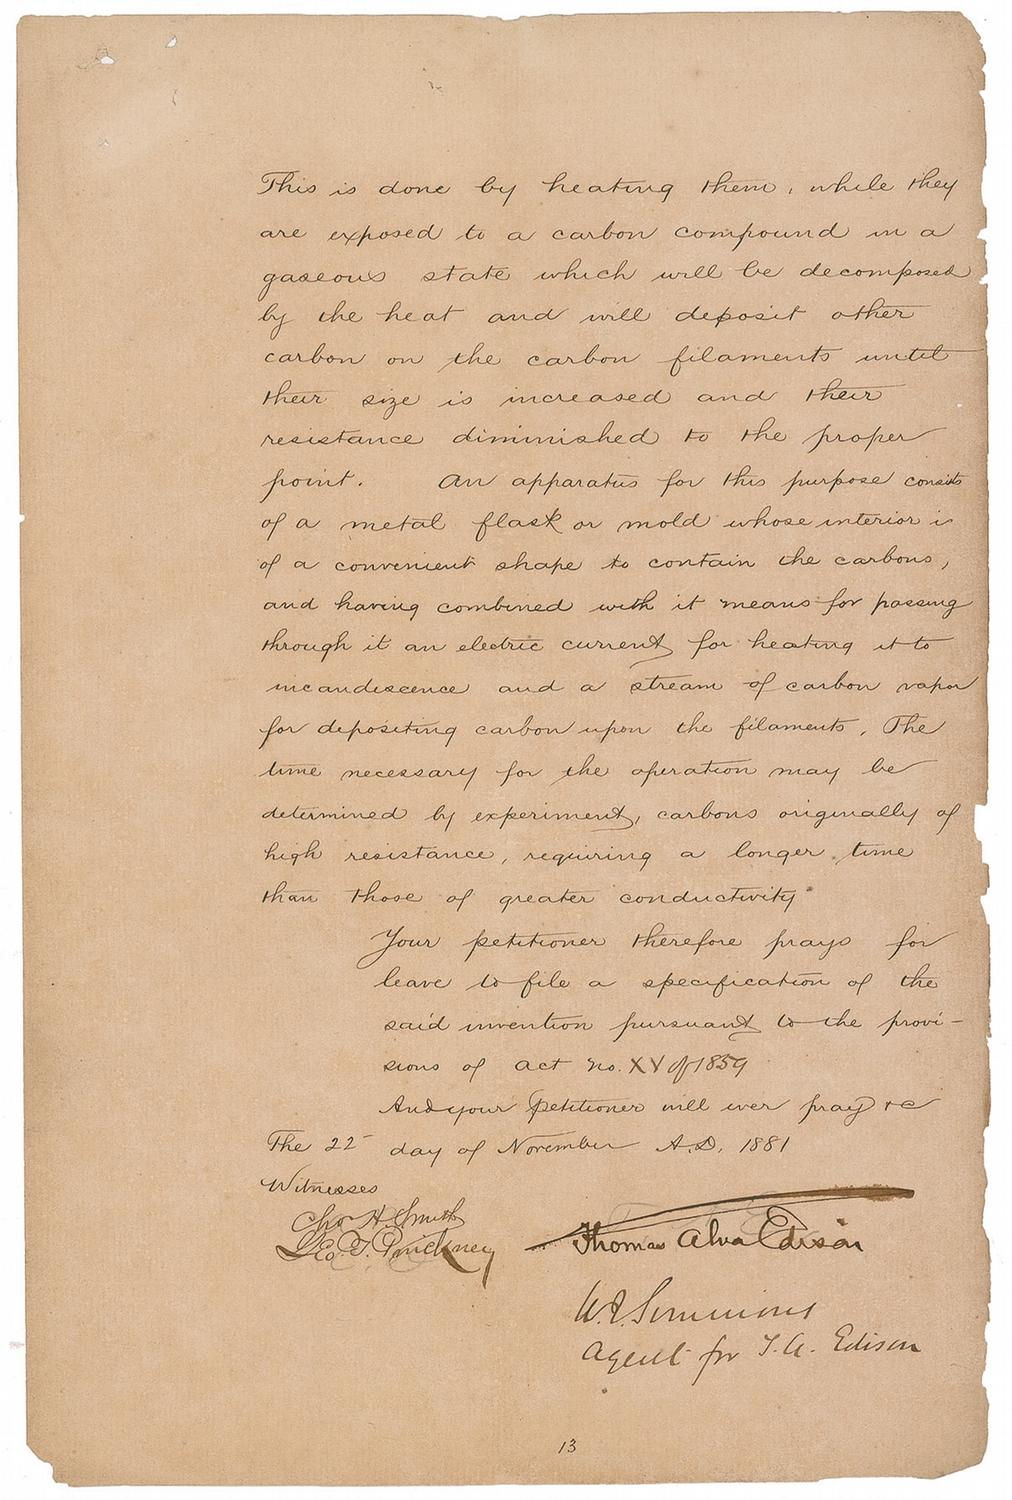 This is done by heating them, while they
are exposed to a carbon compound in a
gaseous state which will be decomposed
by the heat and will deposit other
carbon on the carbon filaments until
their size is increased and their
resistance diminished to the proper
point. An apparatus for this purpose consists
of a metal flask or mold whose interior is
of a convenient shape to contain the carbons,
and having combined with it means for passing
through it an electric current, for heating it to
incandescence and a stream of carbon vapor
for depositing carbon upon the filaments. The
time necessary for the operation may be
determined by experiment, carbons originally of
high resistance, requiring a longer time
than those of greater conductivity
Your petitioner therefore prays for
leave to file a specification of the
said invention pursuant to the provi-
sions of act no. XV of 1859
And your petitioner will ever pray &c
The 22 day of November A.D. 1881
Witnesses
Chas H. Smith
Geo. T. Pinckney
Thomas Alva Edison
Simmons
Agent for T. A. Edison
13